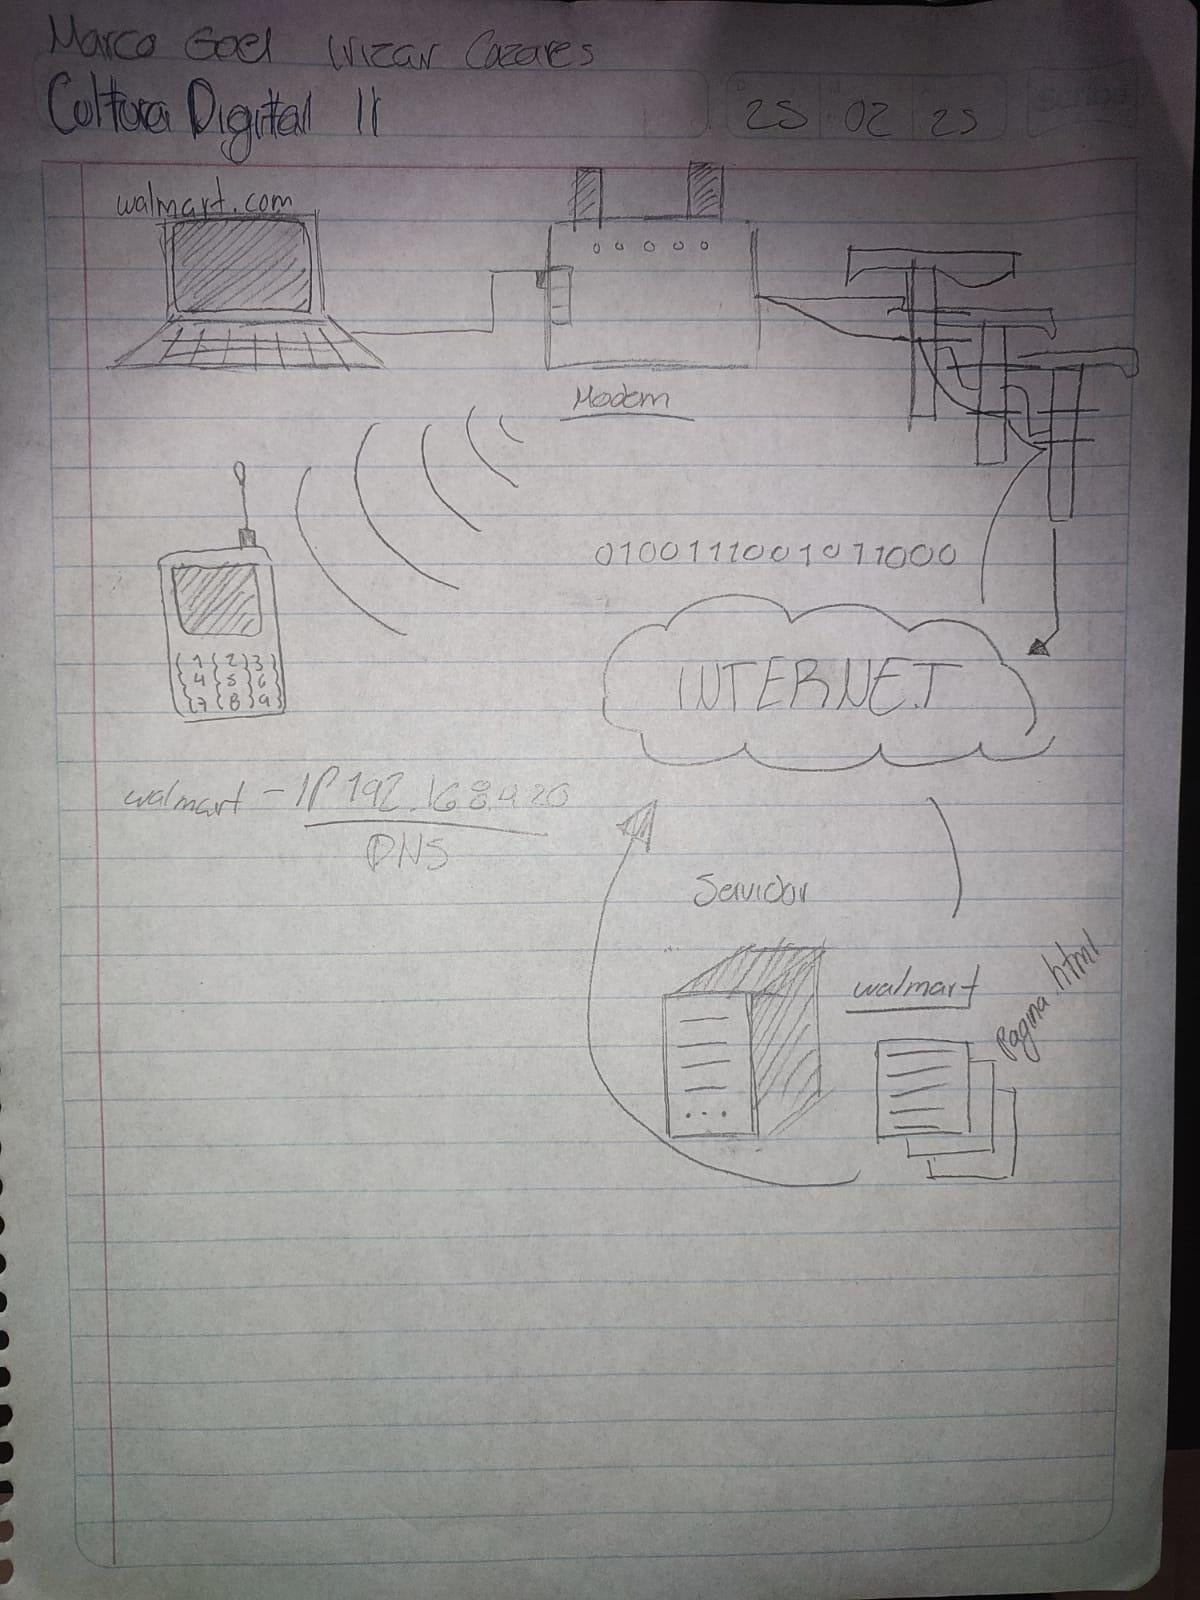 Marco Gael Irizar Cazares
Cultura Digital II
25 02 25
walmart.com
Modem
0100111001011000
1 2 3
4 5 6
7 8 9
INTERNET
walmart - IP 192.168.4.20
DNS
Servidor
walmart
Pagina html